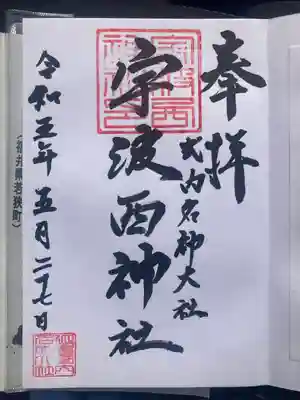 奉拝
式内名神大社
宇波西神社
令和五年五月二十七日
(福井県若狭町)